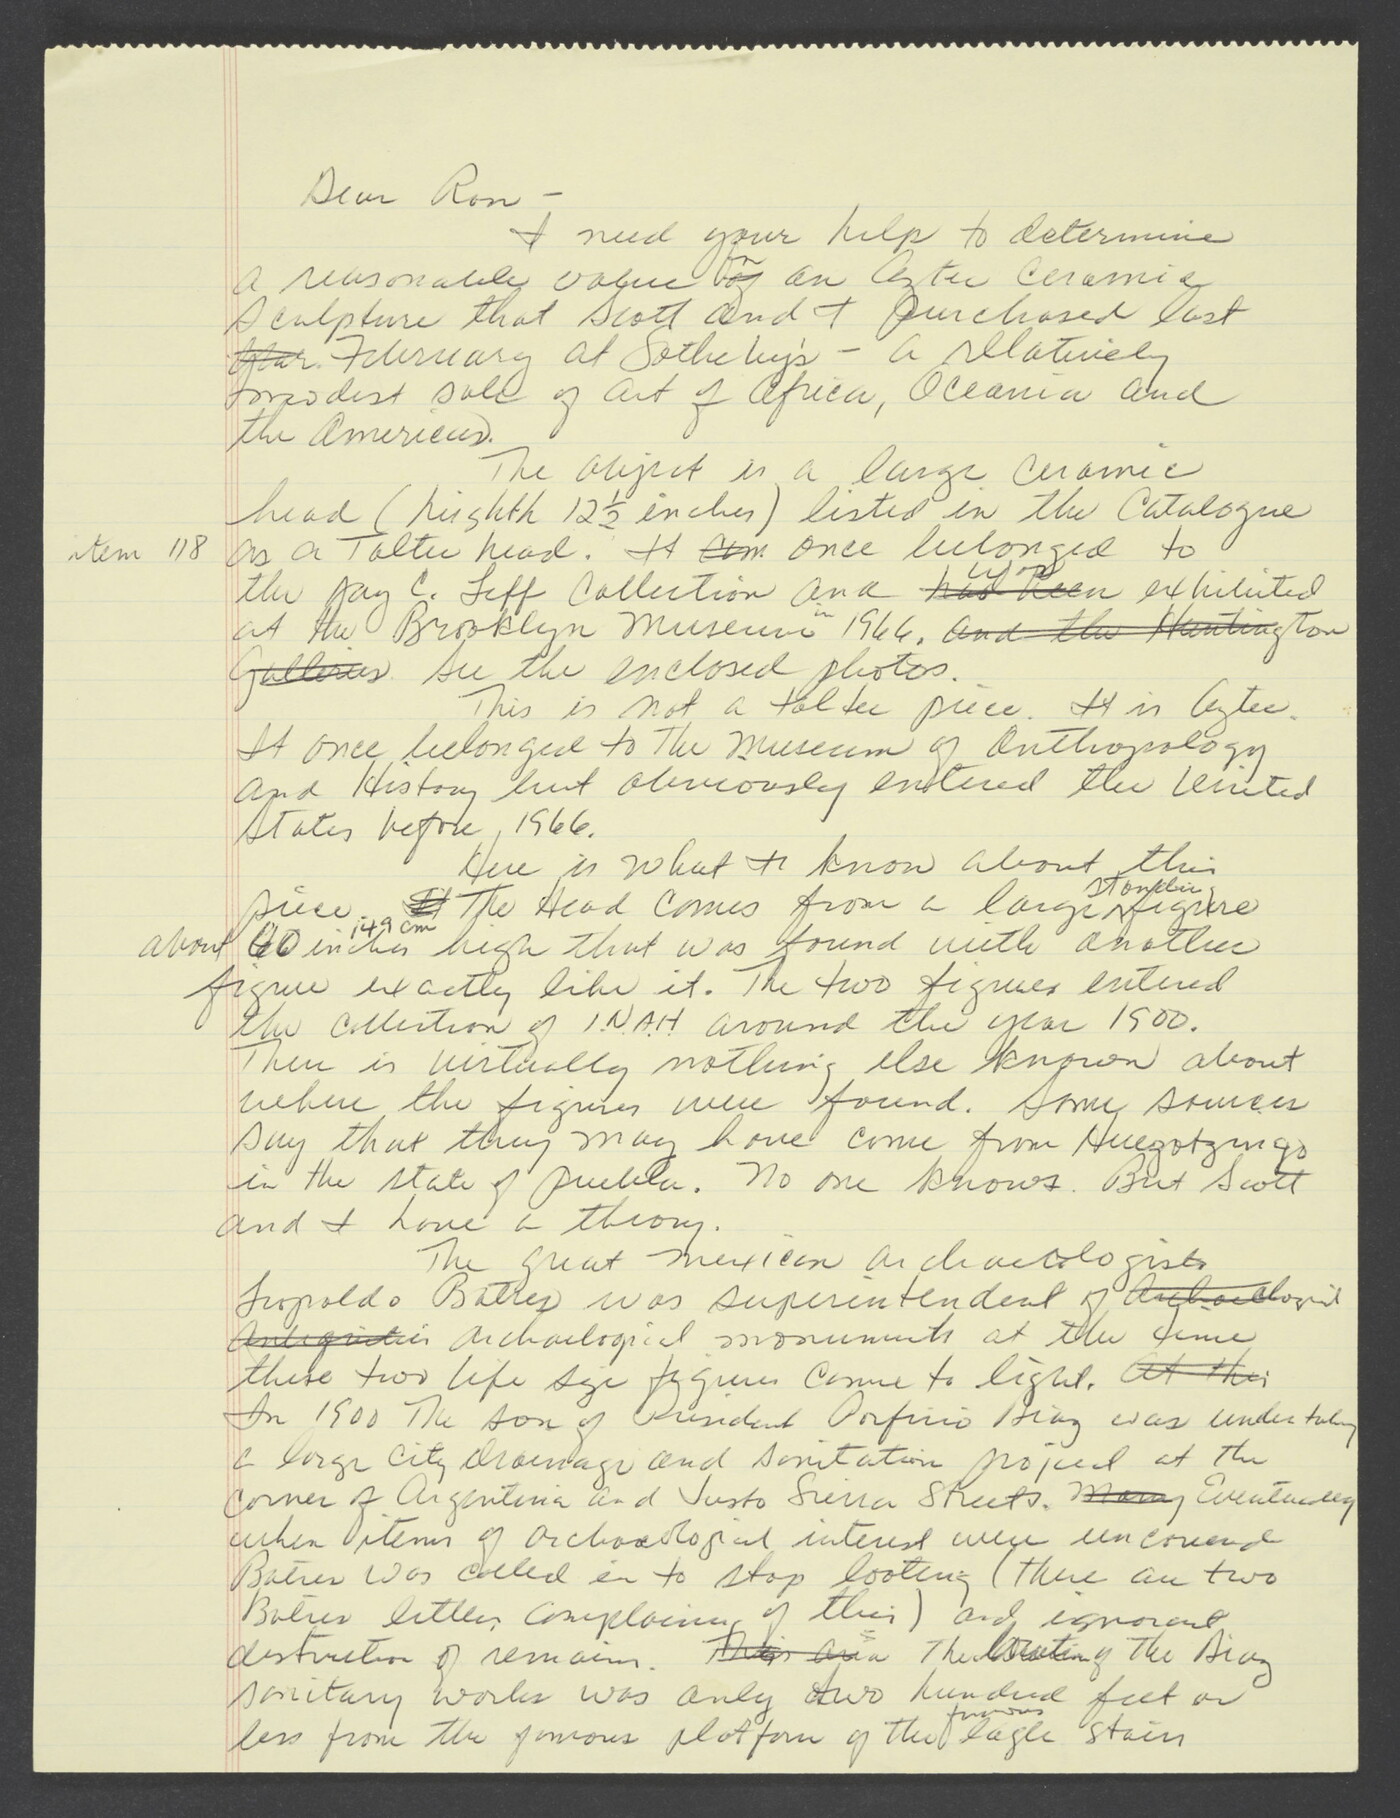 Dear Ron -
I need your help to determine
a reasonable value of for an Aztec Ceramic
Sculpture that Scott and I purchased last
year. February at Sotheby's - a relatively
modest sale of Art of Africa, Oceania and
the Americas.
The object is a large ceramic
head (heighth 12 1/2 inches) listed in the Catalogue
item 118 as a Toltec head. It once belonged to
the Jay C. Leff Collection and had been was exhibited
at the Brooklyn Museum in 1966. and the Huntington
Galleries. See the enclosed photos.
This is not a Toltec piece. It is Aztec.
It once belonged to The Museum of Anthropology
and History but obviously entered the United
States before 1966.
Here is what I know about this
piece. It The Head comes from a large standing figure
about 60 inches 149 cm high that was found with another
figure exactly like it. The two figures entered
the collection of I.N.A.H around the year 1900.
There is virtually nothing else known about
where the figures were found. Some sources
say that they may have come from Huegotzingo
in the state of Puebla. No one knows. But Scott
and I have a theory.
The great Mexican archaeologists
Leopoldo Batres was superintendent of Archaeological
Antiquities archaeological monuments at the time
these two life size figures came to light. At this
In 1900 The son of President Porfirio Diaz was undertaking
a large city drainage and sanitation project at the
corner of Argentina and Justo Sierra Streets. Many Eventually
when items of archaeological interest were uncovered
Batres was called in to stop looting (there are two
Batres letters complaining of this) and ignorant
destruction of remains. This area The location of the Diaz
sanitary works was only two hundred feet or
less from the famous platform of the famous Eagle Stairs